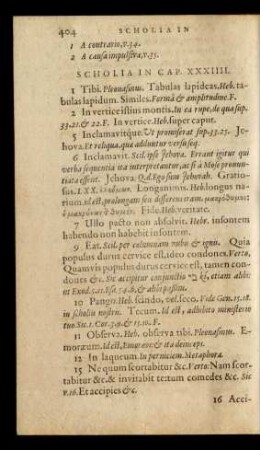 404 SCHOLIA IN
1 A contrario, v.34.
2 A causa impulsiva, v.35.
SCHOLIA IN CAP. XXXIIII.
1 Tibi. Pleonasmus. Tabulas lapideas. Heb. ta-
bulas lapidum. Similes. Formâ & amplitudine. F.
2 In vertice istius montis. In ea rupe, de qua sup.
33.21. & 22. F. In vertice. Heb. super caput.
5 Inclamavitque. Ut promiserat sup. 33.19. Je-
hova. Et reliqua, quæ adduntur versu seq.
6 Inclamavit. Scil. ipse Jehova. Errant igitur qui
verba sequentia ita interpretantur, ac si à Mose pronun-
tiata essent. Jehova. Qd. Ego sum Jehovah. Gratio-
sus. LXX. Longanimis. Heb. longus na-
rium. Id est, prolongam sen differens iram.
Fide. Heb. veritate.
7 Ullo pacto non absolvit. Hebr. insontem
habendo non habebit insontem.
9 Eat. Scil. per columnam nubis & ignis. Quia
populus durus cervice est, ideo condones. Verto,
Quamvis populus durus cervice est, tamen con-
donáts &c. Sic accipitur conjunctio כי, etiam alibi
ut Exod. 5.11. Isa. 54.8. & alibi passim.
10 Pango. Heb. scindo, vel seco. Vide Gen. 15.18.
in scholiis nostris. Tecum. Id est, adhibito ministerio
tuo. Sic 1. Cor. 3.9. & 15.10. F.
11 Observa. Heb. observa tibi. Pleonasmus. E-
moræum. Id est, Emoræos: & ita deinceps.
12 In laqueum. In perniciem. Metaphora.
15 Ne quum scortabitur &c. Verto: Nam scor-
tabitur &c. & invitabit te: tum comedes &c. Sic
v. 16. Et accipies &c.
16 Acci-